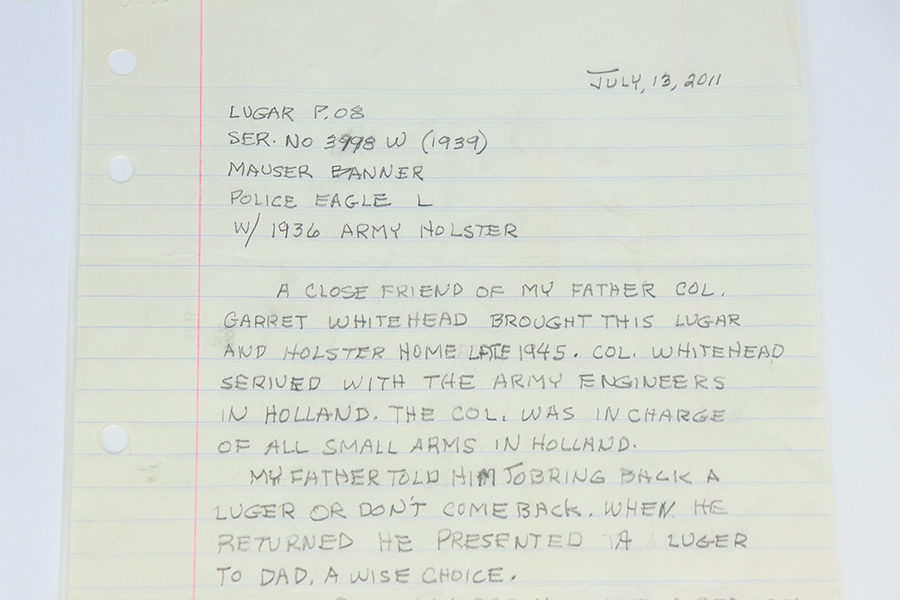 JULY, 13, 2011
LUGAR P.08
SER. NO 3998 W (1939)
MAUSER BANNER
POLICE EAGLE L
W/ 1936 ARMY HOLSTER
A CLOSE FRIEND OF MY FATHER COL.
GARRET WHITEHEAD BROUGHT THIS LUGAR
AND HOLSTER HOME LATE 1945. COL. WHITEHEAD
SERIVED WITH THE ARMY ENGINEERS
IN HOLLAND. THE COL. WAS IN CHARGE
OF ALL SMALL ARMS IN HOLLAND.
MY FATHER TOLD HIM TO BRING BACK A
LUGER OR DON'T COME BACK. WHEN HE
RETURNED HE PRESENTED A LUGER
TO DAD. A WISE CHOICE.